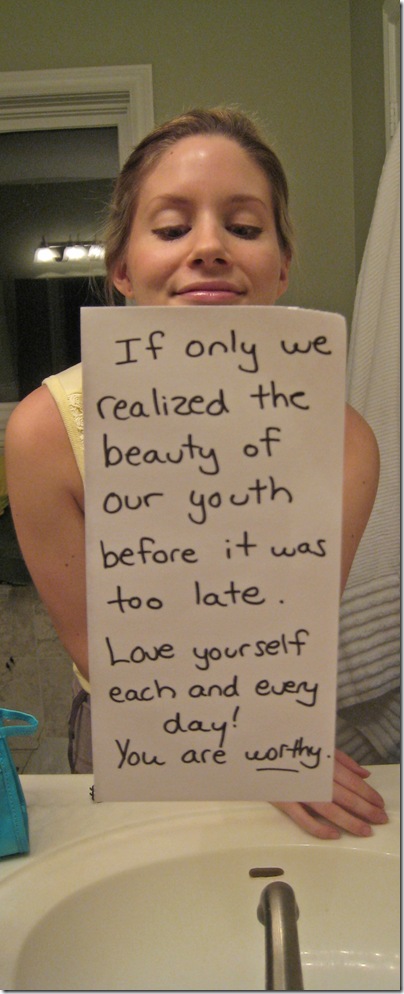 If only we
realized the
beauty of
our youth
before it was
too late.
Love yourself
each and every
day!
You are worthy.